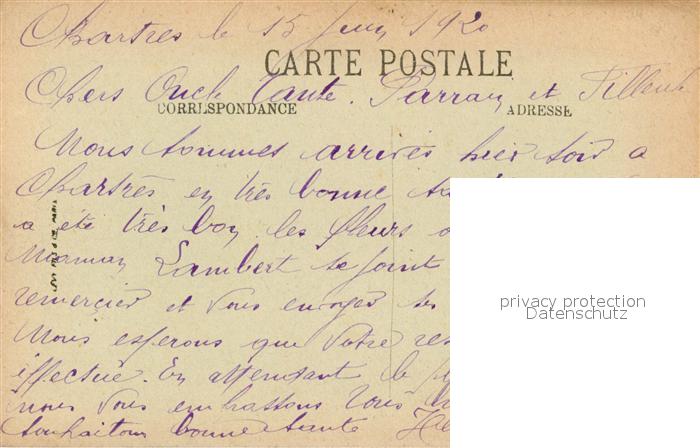 Chartres le 15 Juin 1920
CARTE POSTALE
Chers Oncle Tante. Parrain et Filleule
CORRESPONDANCE
ADRESSE
Nous sommes arrivés hier soir a
Chartres en très bonne
a été très bon les fleurs
Maman Lambert se joint
remercier et vous envoyer
privacy protection
Datenschutz
Nous esperons que votre
effectué. En attendant le
nous vous embrassons tous
souhaitons bonne santé